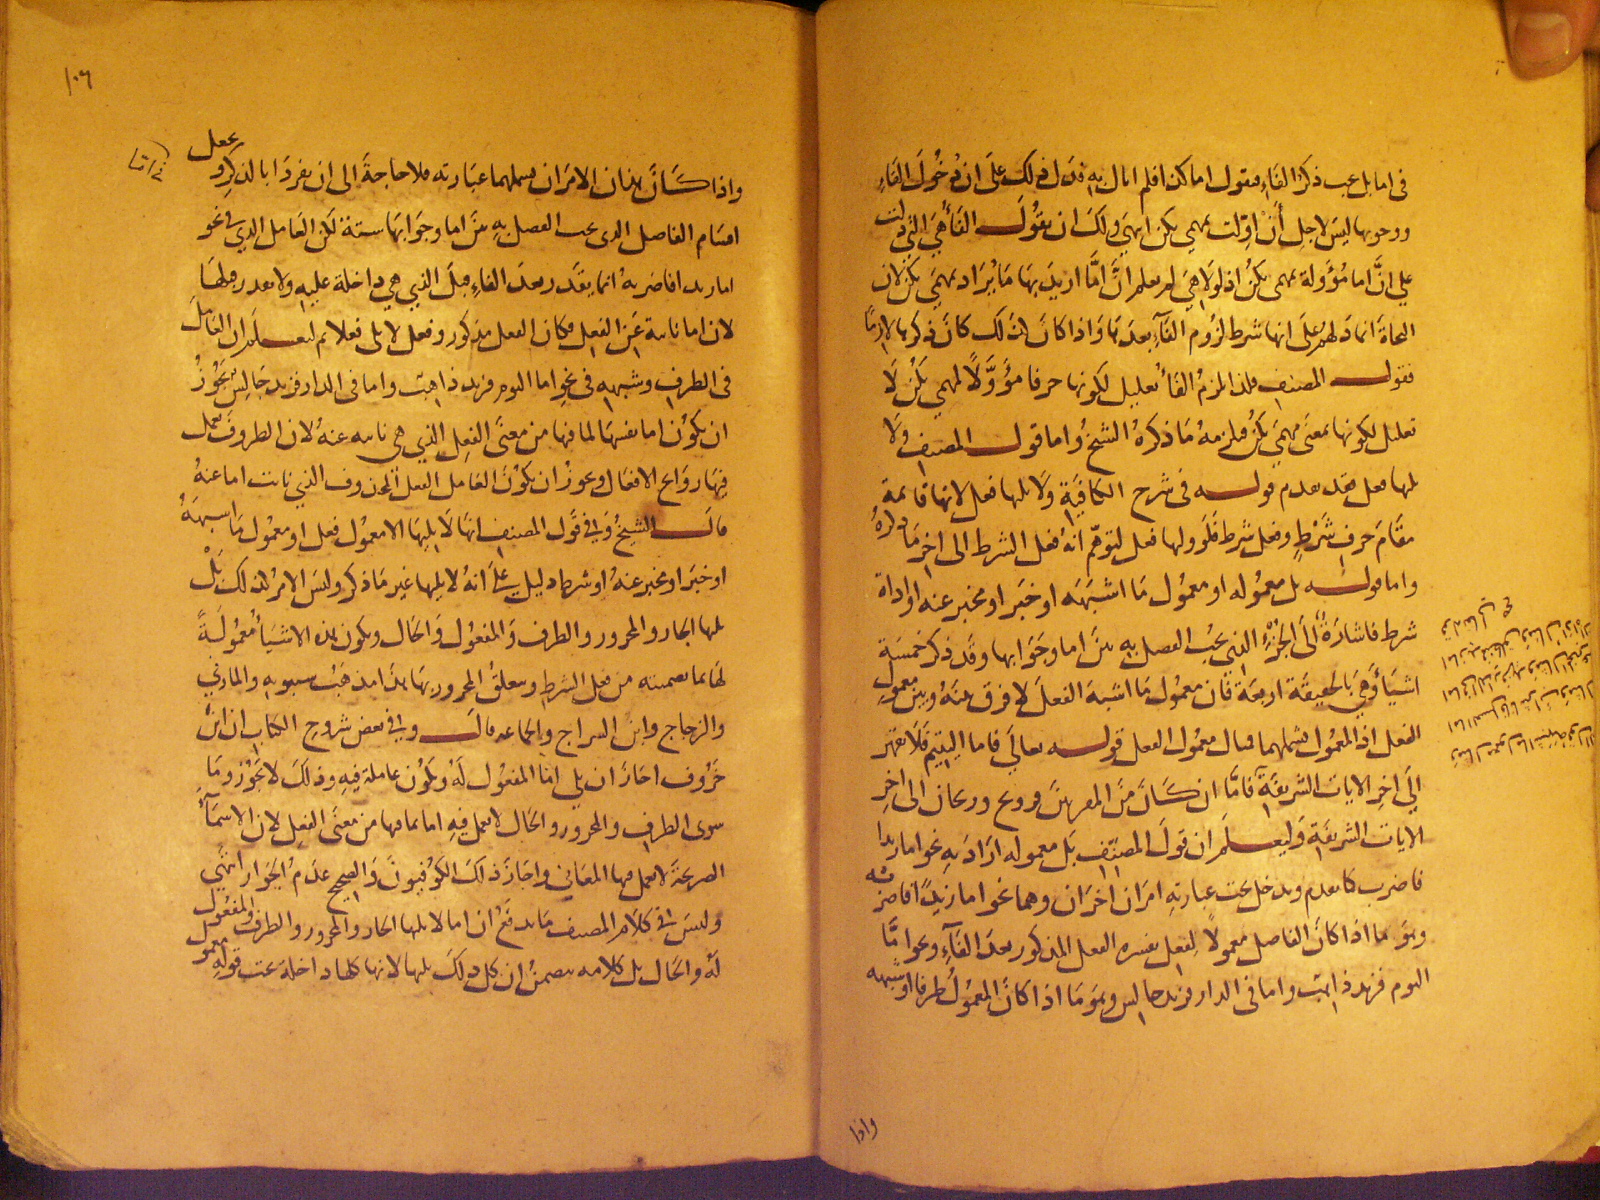 في اما بل يجب ذكر الفاء فنقول اما كن افلم انال به فدل ذلك على ان دخول الفاء
ووجوبها ليس لاجل أن اوّلت بمهمي يكن انتهي ولك ان يقول الفاء هي التي دلت
علي انّ اما مؤولة بمهمي يكن اذ لولا هي لم يعلم انّ امّا اريد بها ما يراد بمهمي يكن لان
النحاة انما دلهم على انها شرط لزوم الفآء بعدها واذا كان كذلك كان ذكرها لازما
فقول المصنف فلذا لزم الفاء تعليل لكونها حرفا مؤوّلا لمهمي يكن لا
تعليل لكونها بمعني مهمي يكن فلزمه ما ذكره الشيخ واما قول المصنف ولا
يلها فعل فقد تقدم قوله في شرح الكافية ولا يلها فعل لانها قائمة
مقام حرف شرط وفعل شرط فلو ولها فعل لتوهّم انه فعل الشرط الى اخر ما ذكره
واما قوله بل معموله او معمول ما اشبهه او خبر او مخبر عنه او اداة
شرط فاشارة الى الجزء الذي يجب الفصل به بين اما وجوابها وقد ذكر خمسة
اشياء وهي بالحقيقة اربعة فان معمول ما اشبه الفعل لا فرق منه وبين معمول
الفعل اذ المعمول يشملهما فمثال معمول الفعل قوله تعالي فاما اليتيم فلا تقهر
الي اخر الايات الشريفة فامّا ان كان من المقربين فروح وريحان الى اخر
الايات الشريفة وليعلم ان قول المصنّف بل معموله اراد به نحو اما زيدا
فاضرب كما تقدم ويدخل تحت عبارته امران اخران وهما نحو اما زيدًا فاضربه
وهو ما اذا كان الفاصل معمولا لفعل يفسره الفعل المذكور بعد الفآء ونحو امّا
اليوم فزيد ذاهب واما في الدار فزيد جالس وهو ما اذا كان المعمول ظرفا او شبهه
واذا
١٠٦
واذا كان هذان الامران يشملهما عبارته فلا حاجة الى ان يفردا بالذكر ويجعل
اقسام الفاصل الذي يجب الفصل به بين اما وجوابها ستة لكن العامل الذي في نحو
اما زيدا فاضربه انما يقدر بعد الفاء قبل الذي هي داخلة عليه ولا يقدر قبلها
لان اما نائبة عن الفعل فكان الفعل مذكور وفعل لا يلي فعلا ثم ليعلم ان العامل
في الظرف وشبهه في نحو اما اليوم فزيد ذاهب واما في الدار فزيد جالس يجوز
ان يكون اما نفسها لما فيها من معنى الفعل الذي هي نائبة عنه لان الظروف يعمل
فيها روايح الافعال ويجوز ان يكون العامل الفعل المحذوف الذي نابت اما عنه
قال الشيخ وفي قول المصنف انها لا يليها الا معمول فعل او معمول ما اشبهه
او خبر او مخبر عنه او شرط دليل على انه لا يليها غير ما ذكر وليس الامر كذلك بل
يلها الجار والمجرور والظرف والمفعول والحال ويكون هذه الاشياء معمولةً
لها بما تضمنته من فعل الشرط وتعلق المجرور بها هذا مذهب سيبويه والمازني
والزجاج وابن السراج والجماعه قال وفي بعض شروح الكتاب ان ابن
خروف اجاز ان يلي اما المفعول له ويكون عاملة فيه وذلك لا يجوز وما
سوى الظرف والمجرور والحال لا يعمل فيه اما بما فيها من معنى الفعل لان الاسمآء
الصريحة لا يعمل فيها المعاني واجاز ذلك الكوفيون والصحيح عدم الجواز انتهي
وليس في كلام المصنف ما يدفع ان اما لا يلها الجار والمجرور والظرف والمفعول
له والحال بل كلامه متضمن ان كل ذلك يلها لانها كلها داخلة تحت قوله معمو